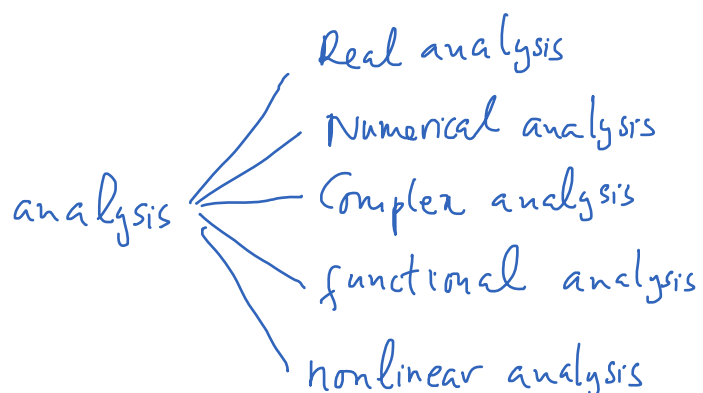 Real analysis
Numerical analysis
Complex analysis
analysis
functional analysis
nonlinear analysis